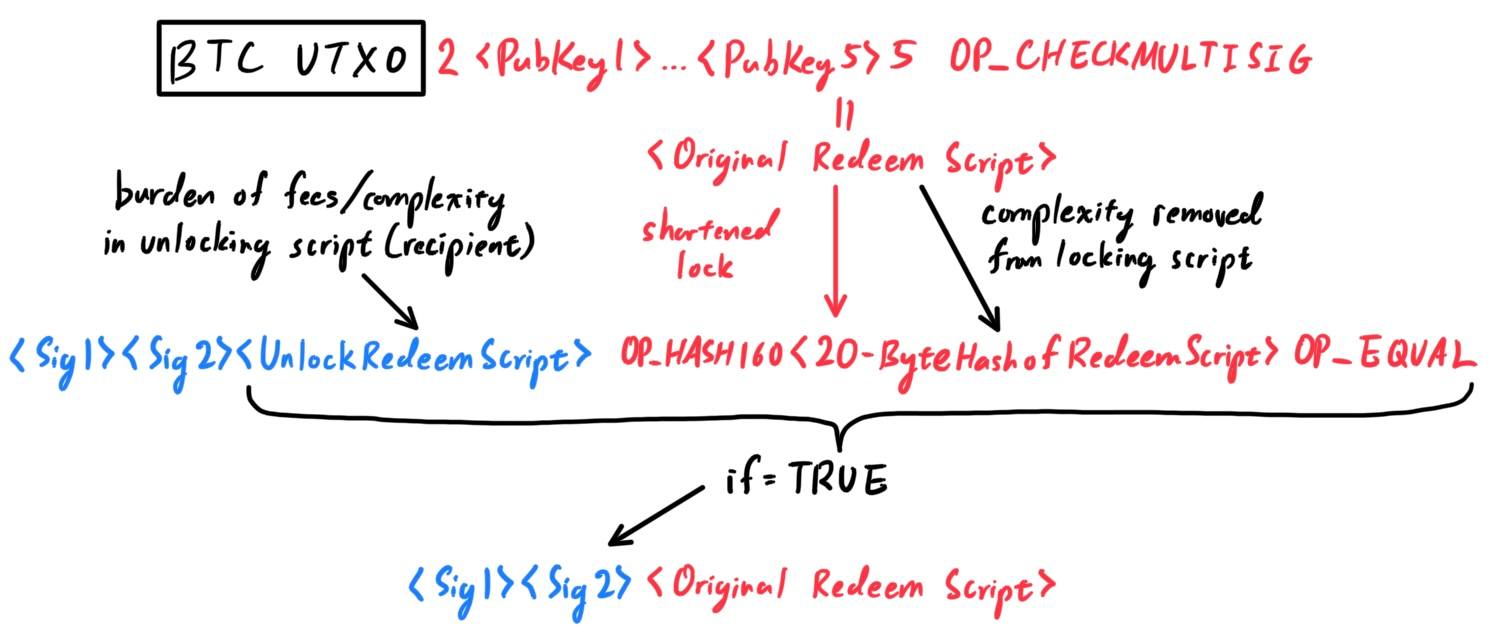 BTC UTXO 2 <PubKey1>...<PubKey5> 5 OP_CHECKMULTISIG
=
<Original Redeem Script>
burden of fees/complexity
in unlocking script (recipient)
shortened
lock
complexity removed
from locking script
<Sig1><Sig2><UnlockRedeemScript> OP_HASH160<20-ByteHashofRedeemScript> OP_EQUAL
if=TRUE
<Sig1><Sig2> <Original Redeem Script>